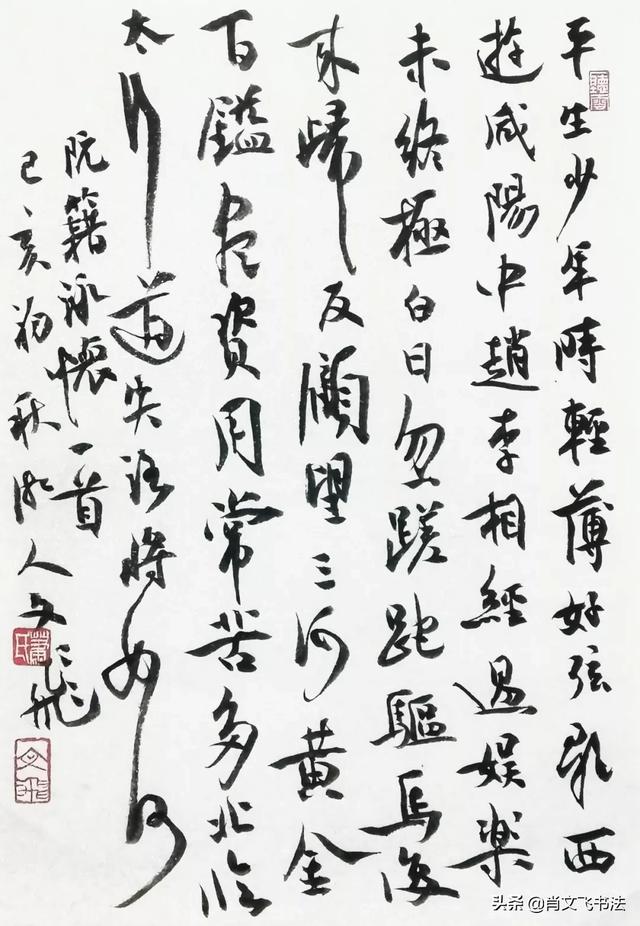 平生少年時輕薄好弦歌西
遊咸陽中趙李相經過娛樂
未終極白日忽蹉跎驅馬復
來歸反顧望三河黃金
百鎰盡資用常苦多北臨
太行道失路將如何
阮籍詠懷一首
己亥初秋湘人文飛
蕭氏
文飛
头条 @肖文飞书法